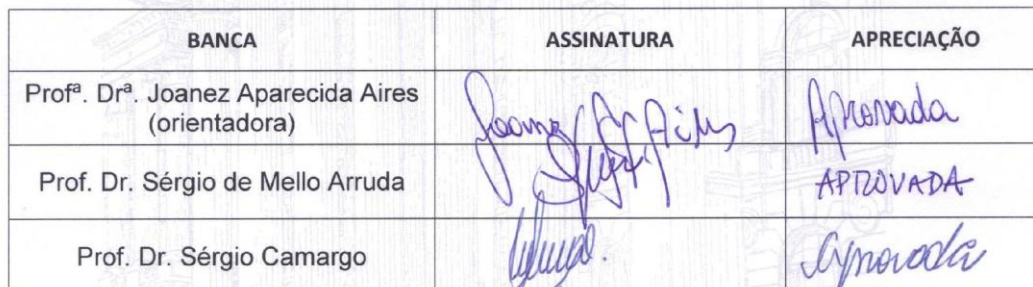 BANCA ASSINATURA APRECIAÇÃO
Profª. Drª. Joanez Aparecida Aires
(orientadora)
Joanez A. Aires
Aprovada
Prof. Dr. Sérgio de Mello Arruda
APROVADA
Prof. Dr. Sérgio Camargo
aprovada